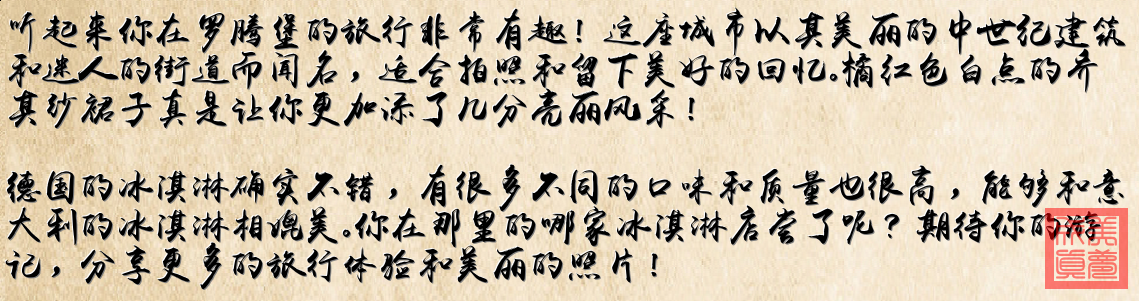 听起来你在罗腾堡的旅行非常有趣！这座城市以其美丽的中世纪建筑
和迷人的街道而闻名，适合拍照和留下美好的回忆。橘红色白点的乔
其纱裙子真是让你更加添了几分亮丽风采！
德国的冰淇淋确实不错，有很多不同的口味和质量也很高，能够和意
大利的冰淇淋相媲美。你在那里的哪家冰淇淋店尝了呢？期待你的游
记，分享更多的旅行体验和美丽的照片！